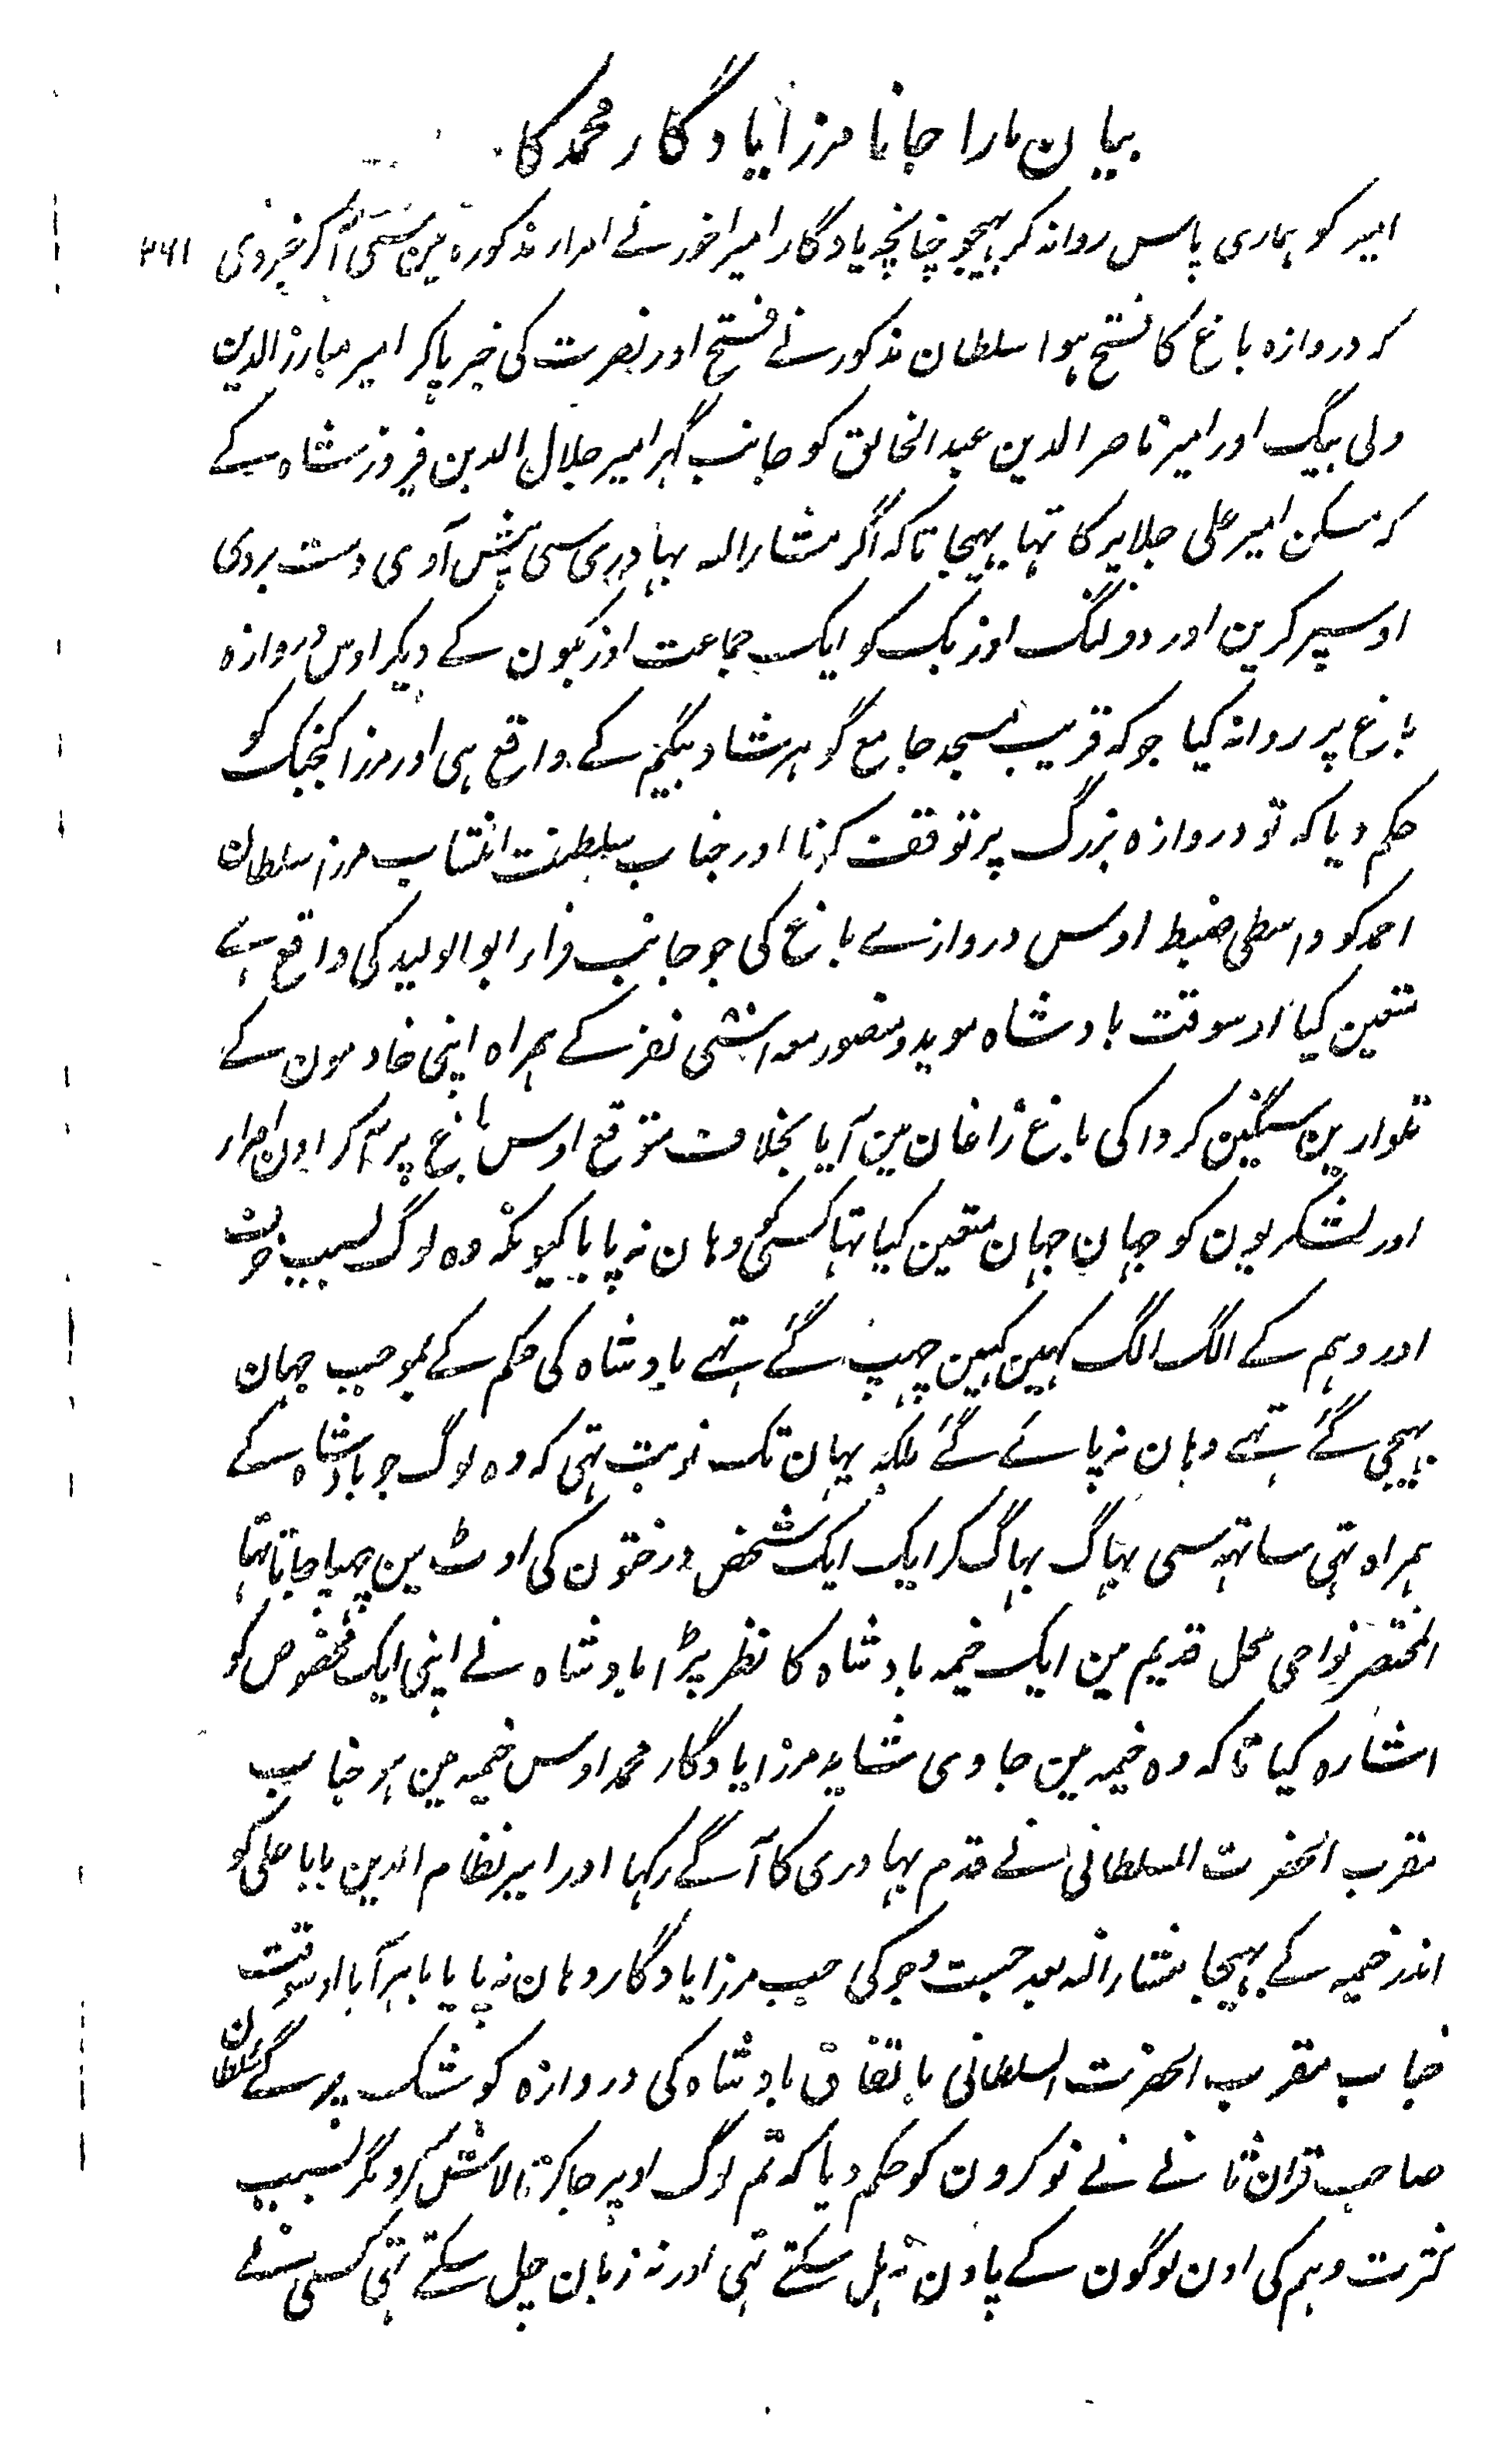 بیان مارا جانا مرزا یادگار محمد کا
امیر کو ہماری پاس روانہ کر بہیجو چنانچہ یادگار امیر اخور نے امراء مذکورہ مین سی آکر خبر دی ۳۶۱
کہ دروازہ باغ کا فتح ہوا سلطان مذکور نے فتح اور نصرت کی خبر پاکر امیر مبارز الدین
ولی بیگ اور امیر ناصر الدین عبد الخالق کو جانب گہر امیر جلال الدین فیروز شاہ کے
کہ مسکن امیر علی جلایر کا تہا بہیجا تاکہ اگر مشار الہ بہادری سی پیش آوی دست بردی
اوسپر کرین اور دولنگ اوزبک کو ایک جماعت اوزبکون کے دیکر اوس دروازہ
باغ پر روانہ کیا جو کہ قریب مسجد جامع گوہر شاد بیگم کے واقع ہی اور مرزا کیچک کو
حکم دیا کہ تو دروازہ بزرگ پر توقف کرنا اور جناب سلطنت انتساب مرزا سلطان
احمد کو واسطی ضبط اوس دروازے باغ کی جو جانب مزار ابو الولید کی واقع ہے
متعین کیا اوسوقت بادشاہ موید و منصور معہ اشی نفر کے ہمراہ اپنی خادمون کے
تلوارین سنگین کروا کی باغ زاغان مین آیا بخلاف متوقع اوس باغ پر آکر اون امراء
اور لشکریون کو جہان جہان متعین کیا تہا کسیکو وہان نہ پایا کیونکہ وہ لوگ بسبب خوف
اور وہم کے الگ الگ کہین کہین چہپ گئے تہے بادشاہ کی حکم کے بموجب جہان
بہیجی گئے تہے وہان نہ پائے گئے بلکہ یہان تک نوبت تہی کہ وہ لوگ جو بادشاہ کے
ہمراہ تہی ساتہہ سی بہاگ بہاگ کر ایک ایک شخص درختون کی اوٹ مین چہپا جاتا تہا
المختصر نواحی محل قدیم مین ایک خیمہ بادشاہ کا نظر پڑا بادشاہ نے اپنی ایک مخصوص کو
اشارہ کیا تاکہ وہ خیمہ مین جاوی شاید مرزا یادگار محمد اوس خیمہ مین ہو جناب
مقرب الحضرت السلطانی نے قدم بہادری کا آگے رکہا اور امیر نظام الدین بابا علی کو
اندر خیمہ کے بہیجا مشار الہ بعد جست و جو کی جب مرزا یادگار وہان نہ پایا باہر آیا اوسوقت
جناب مقرب الحضرت السلطانی باتفاق بادشاہ کی دروازہ کوشک پر گئے سلطان
صاحب قران ثانے نے نوکرون کو حکم دیا کہ تم لوگ اوپر جا کر تلاش کرو مگر بسبب
کثرت وہم کی اون لوگون کے پاون نہ ہل سکتے تہی اور نہ زبان چل سکتے تہی کسی نے